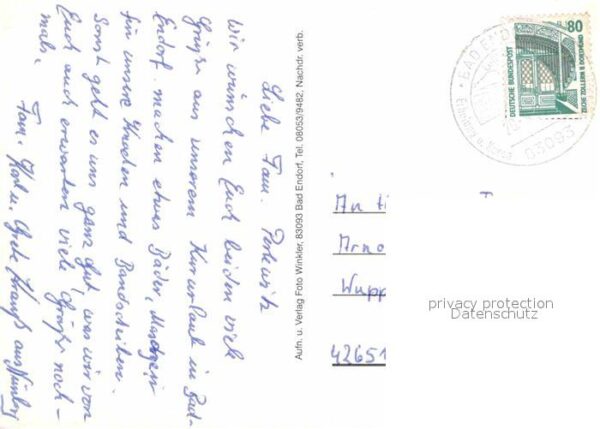 Liebe Fam. Perkwitz
Wir wünschen Euch beiden viele
Grüße aus unserem Kururlaub in Bad-
Endorf. machen etwas Bäder, Massagen
für unsere Knochen und Bandscheiben.
Sonst geht es uns ganz gut, was wir von
Euch auch erwarten viele Grüße noch-
mals, Fam. Karl u. Grete aus Nürnberg
Aufn. u. Verlag Foto Winkler, 83093 Bad Endorf, Tel. 08053/9482, Nachdr. verb.
80
DEUTSCHE BUNDESPOST
ZECHE ZOLLERN II DORTMUND
BAD END
83093
An
Arno
Wupp
42651
privacy protection
Datenschutz